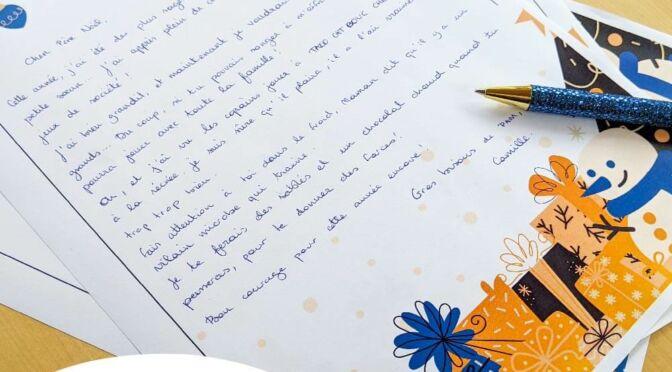 Cher Père Noël,
Cette année, j'ai été des plus sage
petite soeur... j'ai appris plein de
jeux de société!
j'ai bien grandit, et maintenant je voudrais
grands... Du coup, si tu pouvais songer à
pourra jouer avec toute la famille!
Oh, et j'ai vu les copains jouer à TACO CAT BOUC
à la récrée je suis sûre qu'il plaira, il a l'air vraiment
trop trop bien.
Fais attention à toi dans le froid, Maman dit qu'il y a un
vilain microbe qui traine!
Je te ferais des sablés et un chocolat chaud quand tu
passeras, pour te donner des forces!
Bon courage pour cette année encore!
Gros bisous de
Camille.